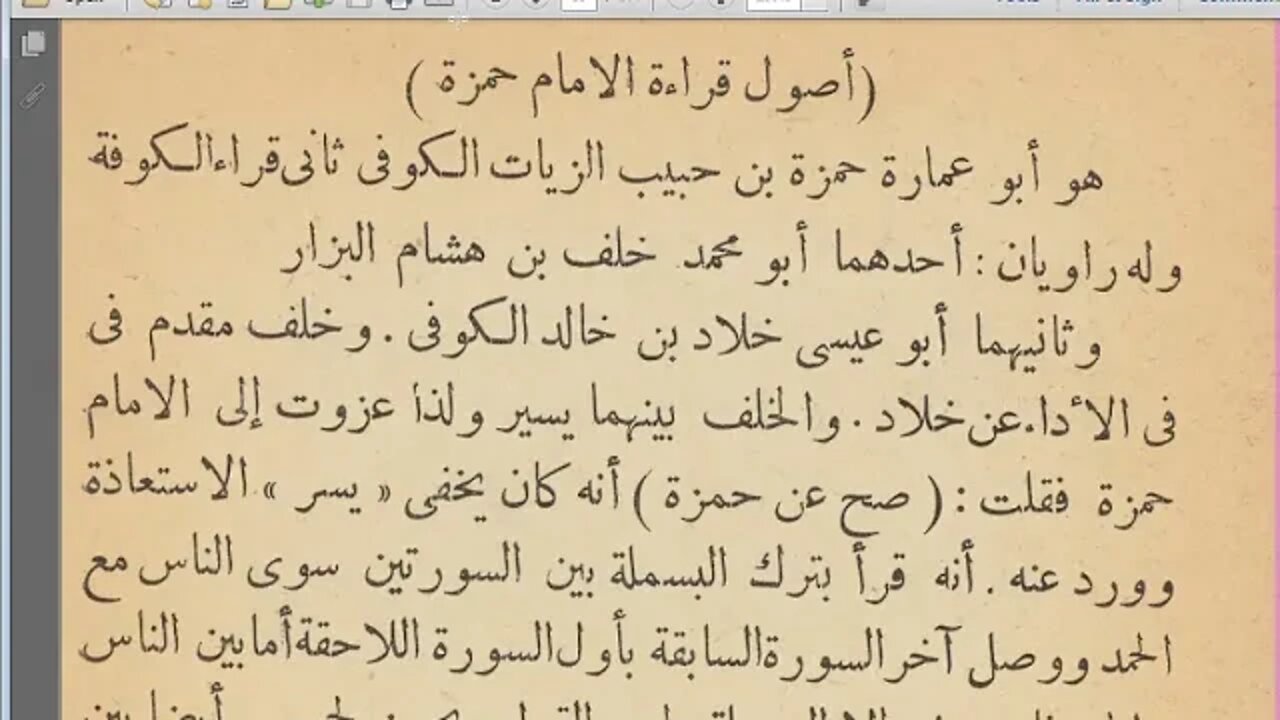 (أصول قراءة الامام حمزة)
هو أبو عمارة حمزة بن حبيب الزيات الكوفى ثانى قراء الكوفة
وله راويان : أحدهما أبو محمد خلف بن هشام البزار
وثانيهما أبو عيسى خلاد بن خالد الكوفى . وخلف مقدم فى
فى الأداء عن خلاد . والخلف بينهما يسير ولذا عزوت إلى الامام
حمزة فقلت : ( صح عن حمزة ) أنه كان يخفى « يسر » الاستعاذة
وورد عنه . أنه قرأ بترك البسملة بين السورتين سوى الناس مع
الحمد ووصل آخر السورة السابقة بأول السورة اللاحقة أما بين الناس